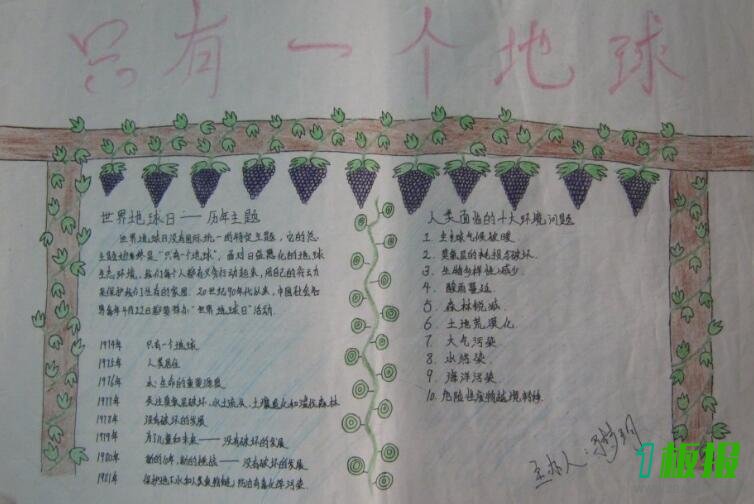 只有一个地球
世界地球日——历年主题
世界地球日没有国际统一的特定主题，它的总
主题始终是“只有一个地球”，面对日益恶化的地球
生态环境，我们每个人都有义务行动起来，用自己的行动
来保护我们生存的家园。20世纪90年代以来，中国社会各
界每年4月22日都要举办“世界地球日”活动。
1974年 只有一个地球
1975年 人类居住
1976年 水：生命的重要源泉
1977年 关注臭氧层破坏、水土流失、土壤退化和滥伐森林
1978年 没有破坏的发展
1979年 为了儿童和未来——没有破坏的发展
1980年 新的10年，新的挑战——没有破坏的发展
1981年 保护地下水和人类食物链，防治有毒化学污染
人类面临的十大环境问题
1. 全球气候破暖
2. 臭氧层的耗损与破坏
3. 生物多样性减少
4. 酸雨蔓延
5. 森林锐减
6. 土地荒漠化
7. 大气污染
8. 水污染
9. 海洋污染
10. 危险性废物越境转移
主办人：
1板报